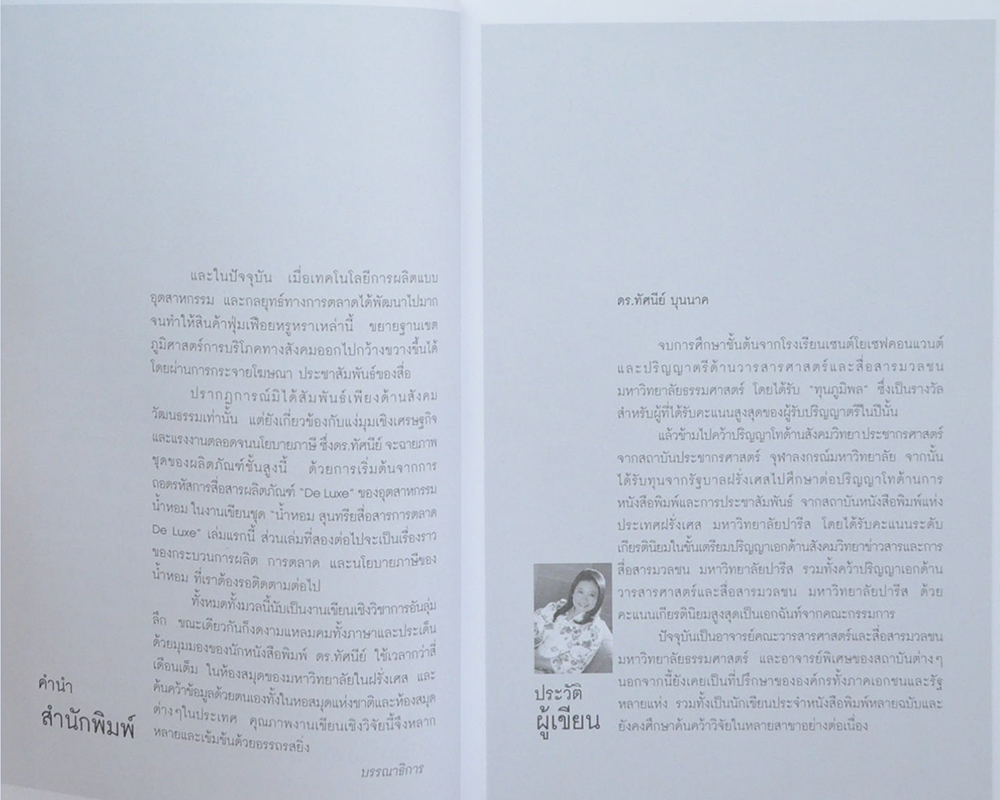 และในปัจจุบัน เมื่อเทคโนโลยีการผลิตแบบ
อุตสาหกรรม และกลยุทธ์ทางการตลาดได้พัฒนาไปมาก
จนทำให้สินค้าฟุ่มเฟือยหรูหราเหล่านี้ ขยายฐานเขต
ภูมิศาสตร์การบริโภคทางสังคมออกไปกว้างขวางขึ้นได้
โดยผ่านการกระจายโฆษณา ประชาสัมพันธ์ของสื่อ
ปรากฏการณ์มิได้สัมพันธ์เพียงด้านสังคม
วัฒนธรรมเท่านั้น แต่ยังเกี่ยวข้องกับแง่มุมเชิงเศรษฐกิจ
และแรงงานตลอดจนนโยบายภาษี ซึ่งดร.ทัศนีย์ จะฉายภาพ
ชุดของผลิตภัณฑ์ชั้นสูงนี้ ด้วยการเริ่มต้นจากการ
ถอดรหัสการสื่อสารผลิตภัณฑ์ "De Luxe" ของอุตสาหกรรม
น้ำหอม ในงานเขียนชุด "น้ำหอม สุนทรียสื่อสารการตลาด
De Luxe" เล่มแรกนี้ ส่วนเล่มที่สองต่อไปจะเป็นเรื่องราว
ของกระบวนการผลิต การตลาด และนโยบายภาษีของ
น้ำหอม ที่เราต้องรอติดตามต่อไป
ทั้งหมดทั้งมวลนี้นับเป็นงานเขียนเชิงวิชาการอันลุ่ม
ลึก ขณะเดียวกันก็งดงามแหลมคมทั้งภาษาและประเด็น
ด้วยมุมมองของนักหนังสือพิมพ์ ดร.ทัศนีย์ ใช้เวลากว่าสี่
เดือนเต็ม ในห้องสมุดของมหาวิทยาลัยในฝรั่งเศส และ
ค้นคว้าข้อมูลด้วยตนเองทั้งในหอสมุดแห่งชาติและห้องสมุด
ต่างๆในประเทศ คุณภาพงานเขียนเชิงวิจัยนี้จึงหลาก
หลายและเข้มข้นด้วยอรรถรสยิ่ง
บรรณาธิการ
คำนำ
สำนักพิมพ์
ดร.ทัศนีย์ บุนนาค
จบการศึกษาชั้นต้นจากโรงเรียนเซนต์โยเซฟคอนแวนต์
และปริญญาตรีด้านวารสารศาสตร์และสื่อสารมวลชน
มหาวิทยาลัยธรรมศาสตร์ โดยได้รับ "ทุนภูมิพล" ซึ่งเป็นรางวัล
สำหรับผู้ที่ได้รับคะแนนสูงสุดของผู้รับปริญญาตรีในปีนั้น
แล้วข้ามไปคว้าปริญญาโทด้านสังคมวิทยา ประชากรศาสตร์
จากสถาบันประชากรศาสตร์ จุฬาลงกรณ์มหาวิทยาลัย จากนั้น
ได้รับทุนจากรัฐบาลฝรั่งเศสไปศึกษาต่อปริญญาโทด้านการ
หนังสือพิมพ์และการประชาสัมพันธ์ จากสถาบันหนังสือพิมพ์แห่ง
ประเทศฝรั่งเศส มหาวิทยาลัยปารีส โดยได้รับคะแนนระดับ
เกียรตินิยมในขั้นเตรียมปริญญาเอกด้านสังคมวิทยาข่าวสารและการ
สื่อสารมวลชน มหาวิทยาลัยปารีส รวมทั้งคว้าปริญญาเอกด้าน
วารสารศาสตร์และสื่อสารมวลชน มหาวิทยาลัยปารีส ด้วย
คะแนนเกียรตินิยมสูงสุดเป็นเอกฉันท์จากคณะกรรมการ
ปัจจุบันเป็นอาจารย์คณะวารสารศาสตร์และสื่อสารมวลชน
มหาวิทยาลัยธรรมศาสตร์ และอาจารย์พิเศษของสถาบันต่างๆ
นอกจากนี้ยังเคยเป็นที่ปรึกษาขององค์กรทั้งภาคเอกชนและรัฐ
หลายแห่ง รวมทั้งเป็นนักเขียนประจำหนังสือพิมพ์หลายฉบับและ
ยังคงศึกษาค้นคว้าวิจัยในหลายสาขาอย่างต่อเนื่อง
ประวัติ
ผู้เขียน